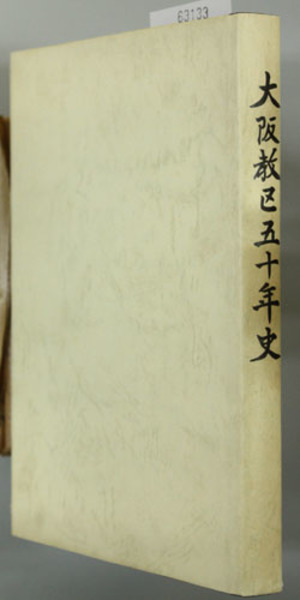 63133
大阪教区五十年史